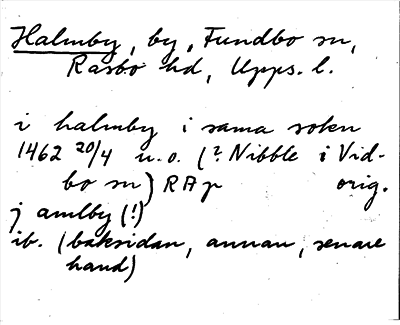 Halmby, by, Fundbo sn,
Rasbo hd, Upps. l.
i halmby i sama soken
1462 20/4 u.o. (? Nibble i Vid-
bo sn) RAp orig.
j amlby (!)
ib. (baksidan, annan, senare
hand)